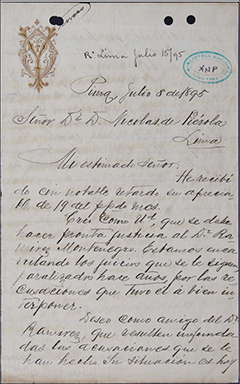 R. Lima Julio 15/95
Piura, Julio 8 de 1895
Señor Dr. D. Nicolas de Piérola
Lima
Mi estimado Señor:
He recibi-
do con notable retardo su aprecia-
ble de 19 del ppdo. mes.
Creo como Ud. que se debe
hacer pronta justicia al Dr. Ra-
mirez Montenegro. Estamos encar-
rilando los juicios que se le siguen
paralizados hace años, por las re-
cusaciones que tuvo él á bien in-
terponer.
Deseo como amigo del Dr.
Ramirez, que resulten infunda-
das las acusaciones que se le
han hecho. Su situacion es hoy
XNP